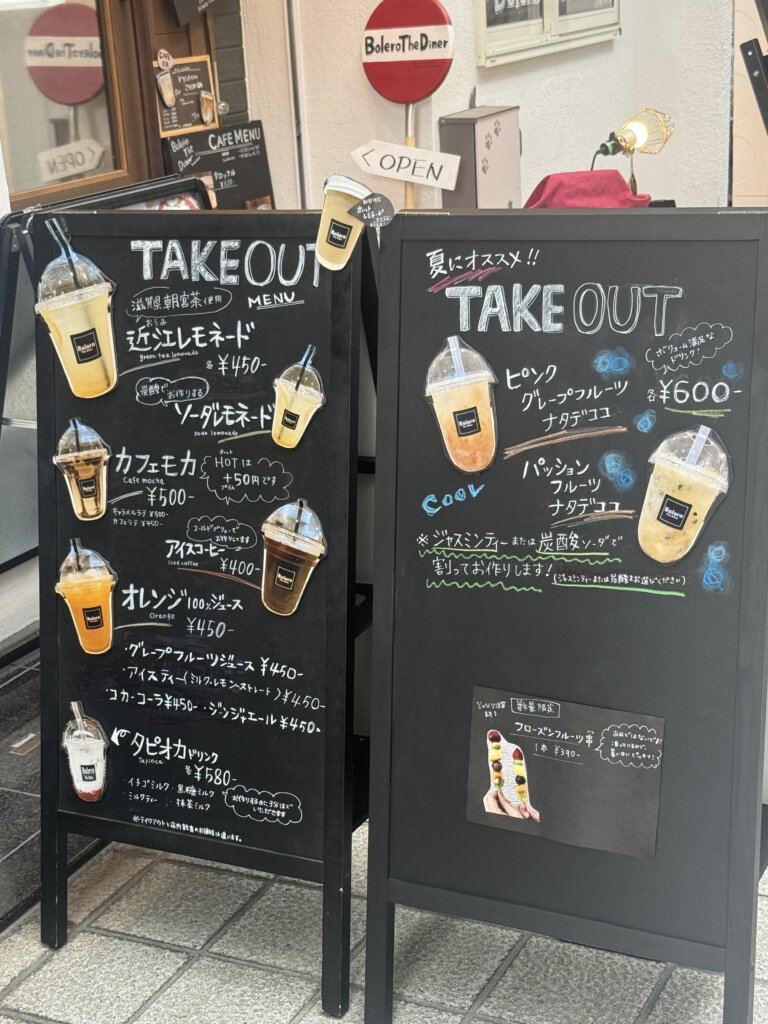 BoleroTheDiner
OPEN
Bolero
The
Diner
CAFE MENU
TAKE OUT
MENU
滋賀県朝宮茶使用
おうみ
近江レモネード
green tea lemonade
各 ¥450-
炭酸でお作りする
ソーダレモネード
soda lemonade
カフェモカ
Cafe mocha
¥500-
HOTは
プラス
+50円です
キャラメルラテ ¥500-
カフェラテ ¥450-
コールドブリューで
お作りしてます
アイスコーヒー
iced coffee
¥400-
オレンジ100%ジュース
Orange
¥450-
・グレープフルーツジュース ¥450-
・アイスティー(ミルク・レモン・ストレート) ¥450-
・コカ・コーラ¥450- ・ジンジャエール¥450-
タピオカドリンク
tapioca
各¥580-
・イチゴミルク・黒糖ミルク
・ミルクティー ・抹茶ミルク
お作りするのに3分ほど
いただきます
※テイクアウトと店内飲食のお値段は違います。
夏にオススメ!!
TAKE OUT
ボリューム満点な
ドリンク!
各¥600-
ピンク
グレープフルーツ
ナタデココ
パッション
フルーツ
ナタデココ
COOL
※ジャスミンティーまたは炭酸ソーダで
割ってお作りします!(ジャスミンティーまたは炭酸をお選びください)
数量限定
フローズンフルーツ串
1本 ¥390-
Bolero
The Diner